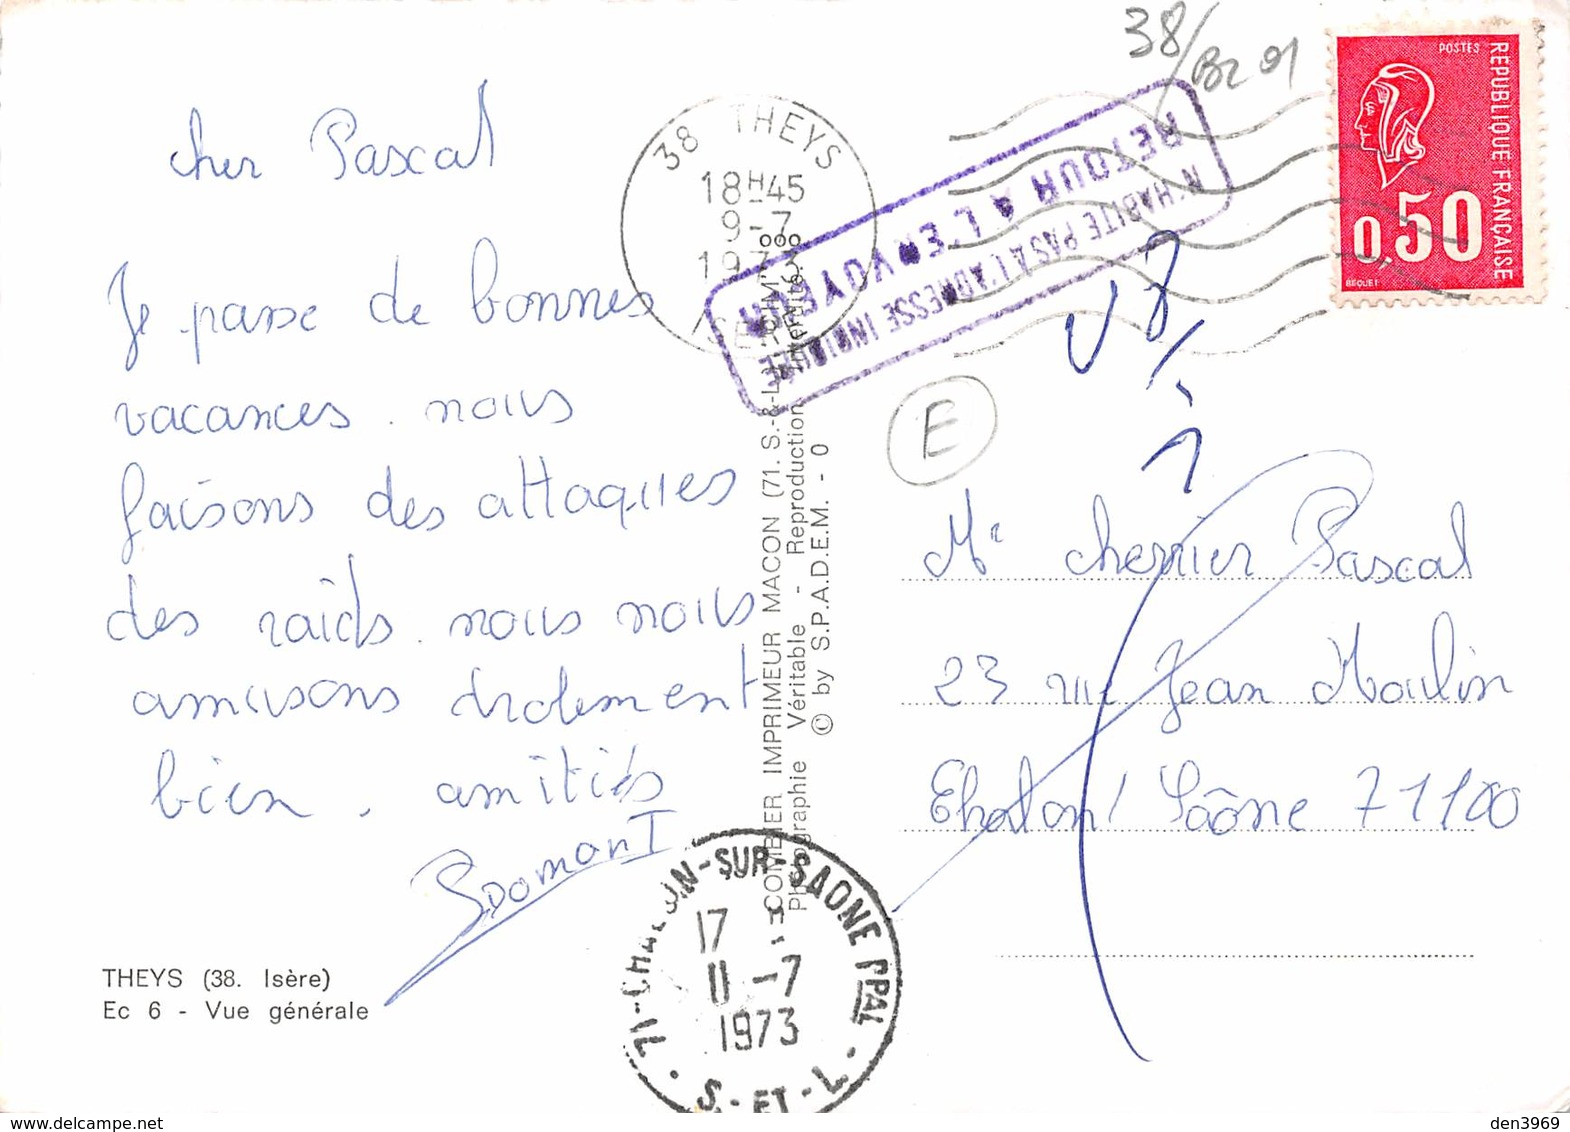 cher Pascal
Je passe de bonnes
vacances. nous
faisons des attaques
des raids. nous nous
amusons drolement
bien. amitiés
THEYS (38. Isère)
Ec 6 - Vue générale
COMBIER IMPRIMEUR MACON (71. S.-&-L.
Photographie Véritable - Reproduction interdite
© by S.P.A.D.E.M. - 0
38 THEYS
18H45
9-7
1973
ISERE
N'HABITE PAS A L'ADRESSE INDIQUÉE
RETOUR A L'ENVOYEUR
38/
POSTES
REPUBLIQUE FRANÇAISE
0,50
BEQUET
E
Mr Pascal
23 rue Jean Moulin
Chalon / Saône 71100
71-CHALON-SUR-SAONE PPAL
17 H
11-7
1973
S.-ET-L.
den3969